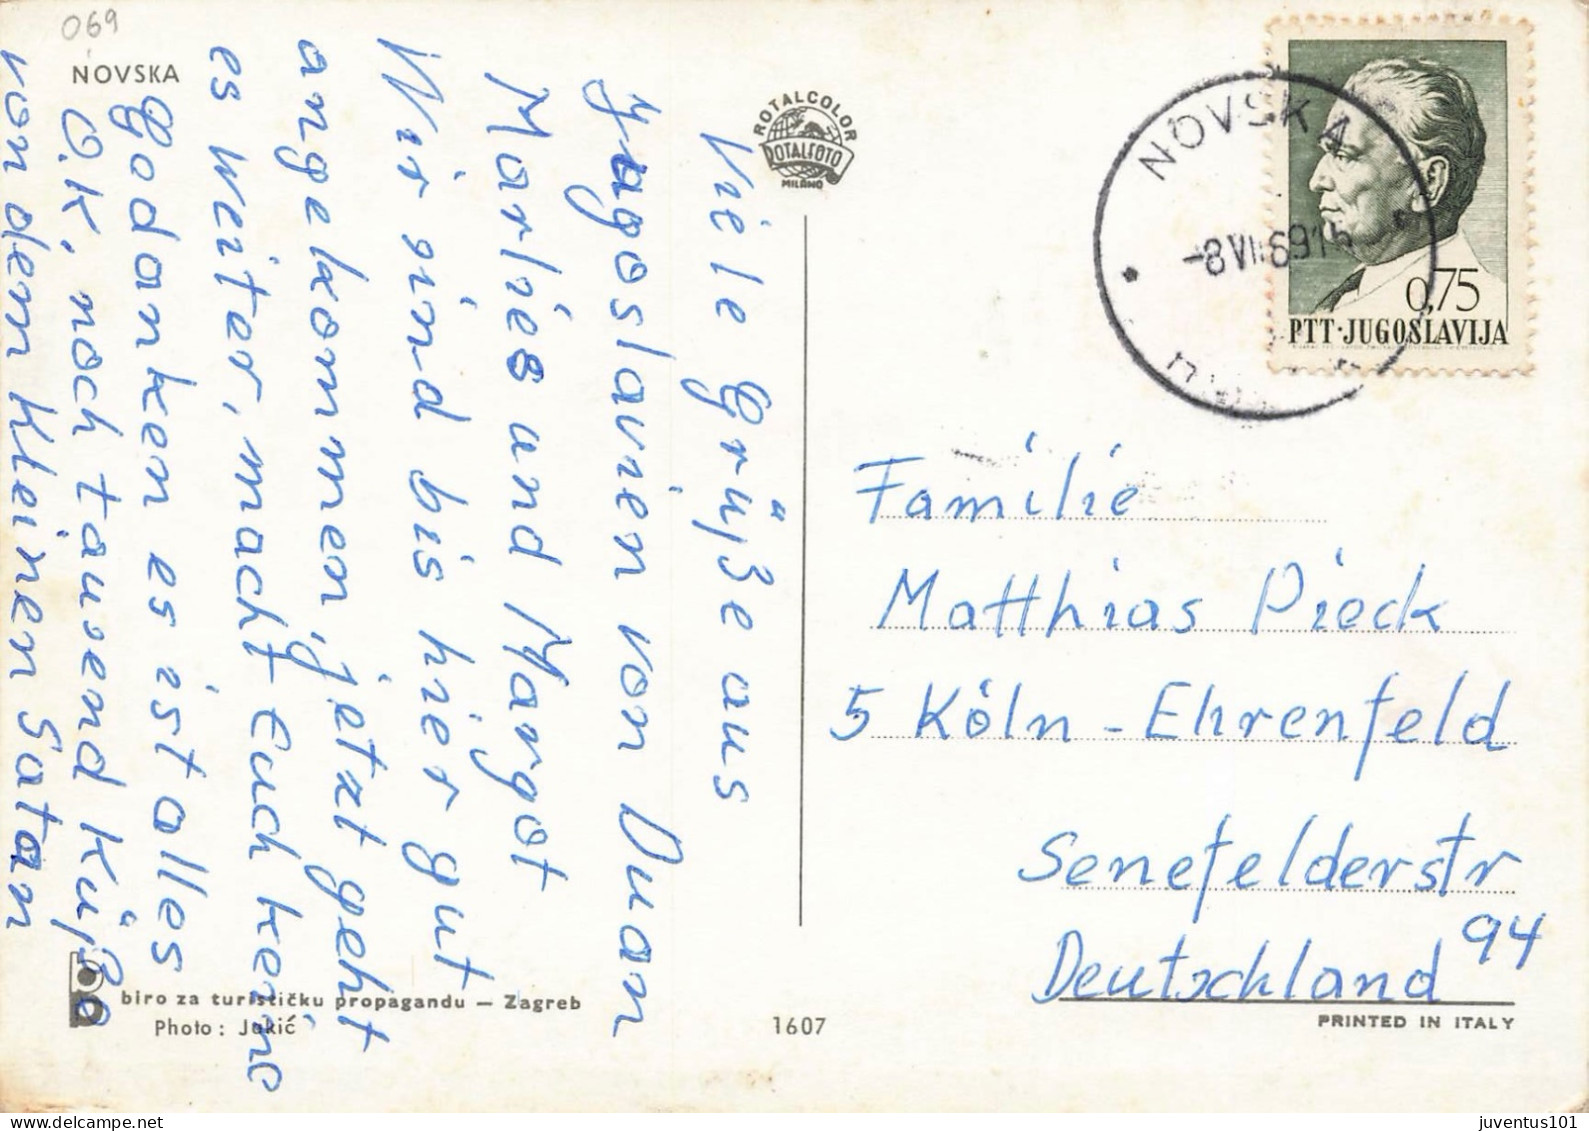 069
NOVSKA
ROTALCOLOR
ROTALFOTO
MILANO
Viele Grüße aus
Jugoslavien von Duan
Marlies and Margot
Wir sind bis hier gut
angekommen, jetzt geht
es weiter, macht Euch keine
Gedanken es ist alles
O.K, noch tausend Küße
von dem kleinen Satan
NOVSKA
-8 VII 69 15
0,75
PTT·JUGOSLAVIJA
Familie
Matthias Pieck
5 Köln - Ehrenfeld
Senefelderstr
94
Deutschland
biro za turističku propagandu — Zagreb
Photo: Jukić
1607
PRINTED IN ITALY
juventus101